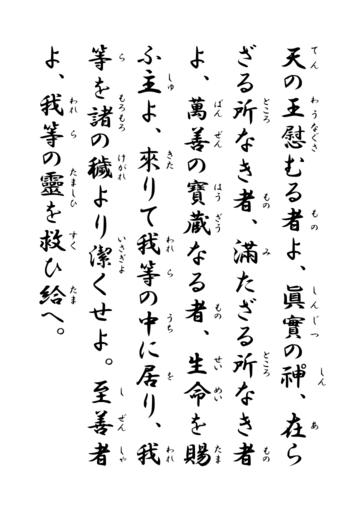 天の王慰むる者よ、眞實の神゜、在ら
ざる所なき者、滿たざる所なき者
よ、萬善の寶藏なる者、生命を賜
ふ主よ、來りて我等の中に居り、我
等を諸の穢より潔くせよ。至善者
よ、我等の靈を救ひ給へ。